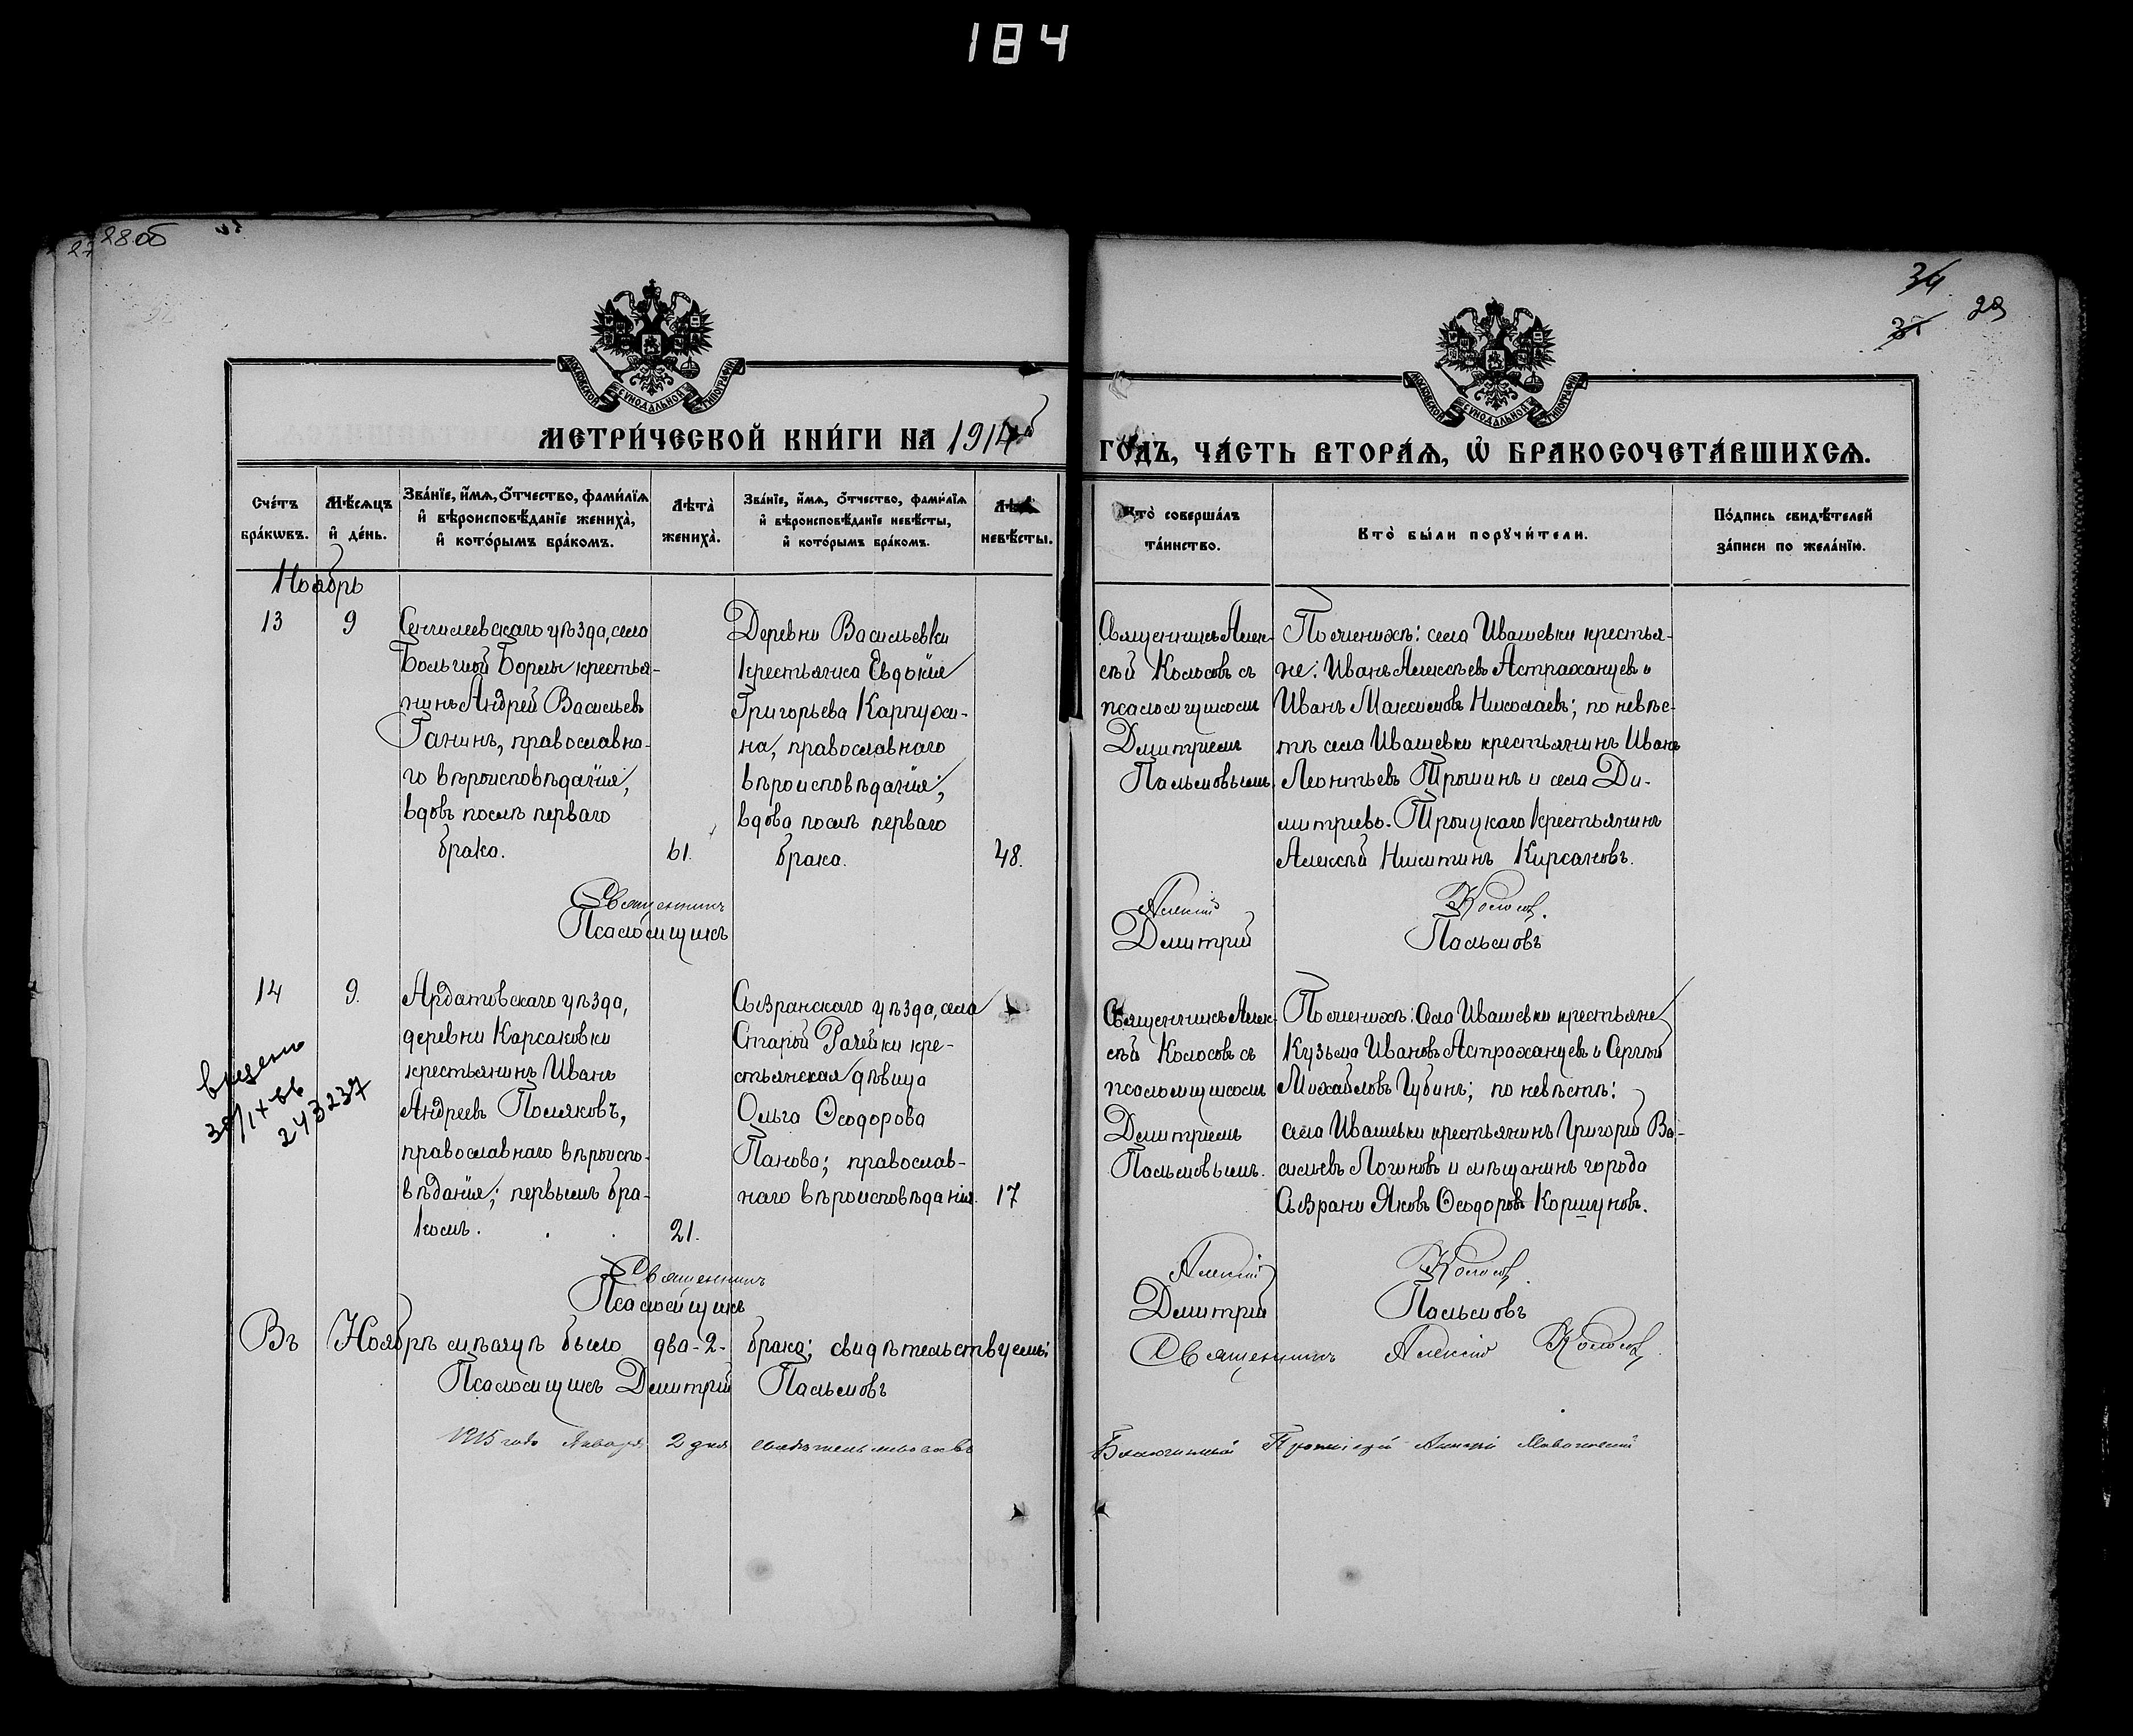 184
28об
27
34
35
29
МОСКОВСКОЙ СѴНОДАЛЬНОЙ ТИПОГРАФІИ
МОСКОВСКОЙ СѴНОДАЛЬНОЙ ТИПОГРАФІИ
МЕТРИ́ЧЕСКОЙ КНИ́ГИ НА 1914й
ГО́ДЪ, ЧА́СТЬ ВТОРА́Ѧ, Ѡ҆ БРАКОСОЧЕТА́ВШИХСѦ.
Сче́тъ бра́кѡвъ.
Мѣ́сѧцъ и҆ де́нь.
Зва́нїе, и҆́мѧ, ѻ҆́тчество, фами́лїѧ и҆ вѣроисповѣ́данїе жениха̀, и҆ кото́рымъ бра́комъ.
Лѣта̀ жениха̀.
Зва́нїе, и҆́мѧ, ѻ҆́тчество, фами́лїѧ и҆ вѣроисповѣ́данїе невѣ́сты, и҆ кото́рымъ бра́комъ.
невѣ́сты.
Кто̀ соверша́лъ та́инство.
Кто̀ бы́ли порꙋчи́тели.
По́дпись свидѣ́телей за́писи по жела́нїю.
Ноябрь
13
9
Сенгилеевскаго уѣзда, села
Большой Борлы крестья-
нинъ Андрей Васильевъ
Ганинъ, православна-
го вѣроисповѣданія,
вдовъ послѣ перваго
брака.
61.
Деревни Васильевки
крестьянка Евдокія
Григорьева Карпухи-
на, православнаго
вѣроисповѣданія,
вдова послѣ перваго
брака.
48.
Священникъ Алек-
сѣй Колосовъ съ
псаломщикомъ
Дмитріемъ
Пальмовымъ.
По женихѣ: села Ивашевки крестья-
не: Иванъ Алексѣевъ Астраханцевъ и
Иванъ Максимовъ Николаевъ; по невѣс-
тѣ села Ивашевки крестьянинъ Иванъ
Леонтьевъ Трошинъ и села Ди-
митріево-Троицкаго крестьянинъ
Алексѣй Никитинъ Кирсановъ.
Священникъ Алексій Колосовъ.
Псаломщикъ Дмитрій Пальмовъ
14
9.
Ардатовскаго уѣзда,
деревни Карсаковки
крестьянинъ Иванъ
Андреевъ Поляковъ,
православнаго вѣроиспо-
вѣданія; первымъ бра-
комъ.
21.
Сызранскаго уѣзда, села
Старой Рачейки кре-
стьянская дѣвица
Ольга Ѳеодорова
Панова; православ-
наго вѣроисповѣданія.
17
Священникъ Алек-
сѣй Колосовъ съ
псаломщикомъ
Дмитріемъ
Пальмовымъ.
По женихѣ: села Ивашевки крестьяне
Кузьма Ивановъ Астраханцевъ и Сергѣй
Михайловъ Губинъ; по невѣстѣ:
села Ивашевки крестьянинъ Григорій Ва-
сильевъ Логиновъ и мѣщанинъ города
Сызрани Яковъ Ѳеодоровъ Коршуновъ.
243237
Священникъ Алексій Колосовъ.
Псаломщикъ Дмитрій Пальмовъ
Въ Ноябрѣ мѣсяцѣ было два-2-брака; свидѣтельствуемъ: Священникъ Алексій Колосовъ.
Псаломщикъ Дмитрій Пальмовъ
1915 года Января 2 дня свидѣтельствовалъ Благочинный Протоіерей